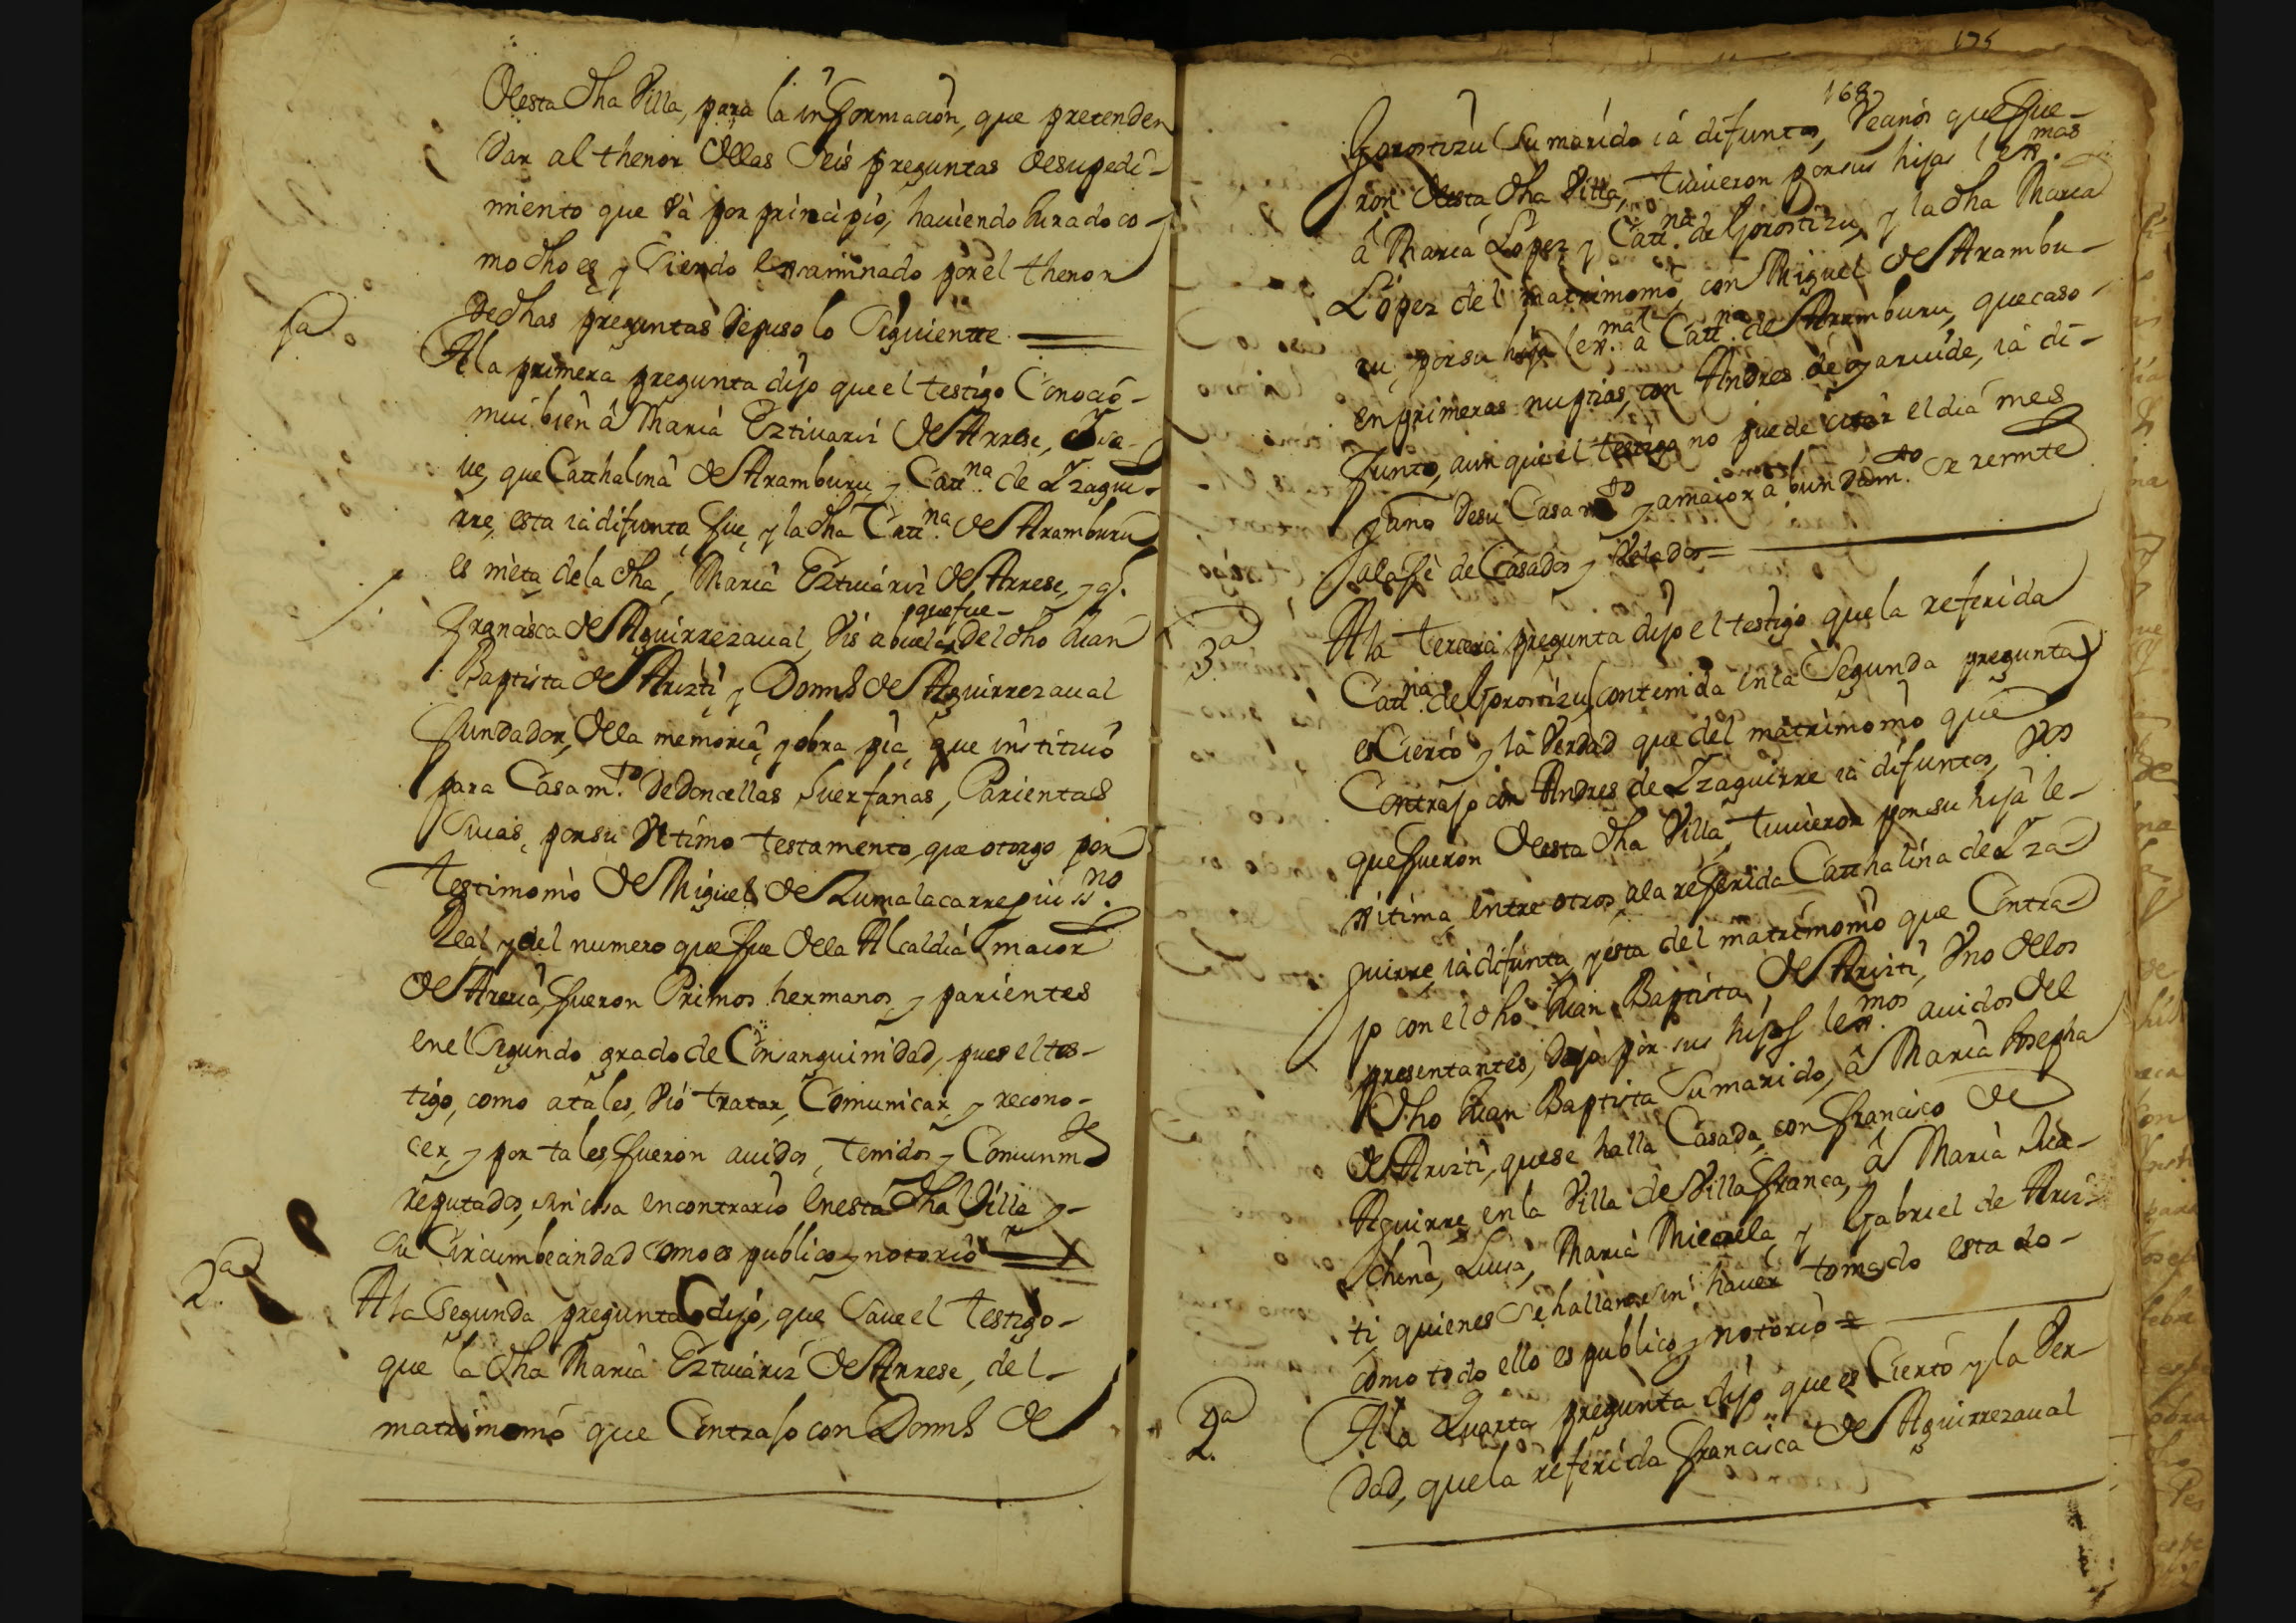 desta dha Villa, para la informacion, que pretenden
dar al thenor dellas seis preguntas de su pedi-
miento que và por principio, haviendo Jurado co-
mo dho es y siendo examinado por el thenor
de dhas preguntas depuso lo siguiente
1a
A la primera pregunta dijo que el testigo Conocio
mui bien â Maria Eztiuariz de Arrese, y save
ue, que Catthalina de Aramburu, y Catt.na de Yzagui-
rre, esta ia difunta fue, y la dha Catt.na de Aramburu
es nieta de la dha, Maria Eztiuariz de Arrese, y q.
Francisca de Aguirrezaual, Vis abuela que fue del dho Juan
Baptista de Arizti y Doms de Aguirrezaual
fundador, della memoria, y obra pia, que instituiò
para Casam.to de doncellas huerfanas, Parientas
suias, por su Vltimo testamento, que otorgo por
testimonio de Miguel de Zumalacarregui ss.no
Real, y del numero que fue della Alcaldia maior
de Areria, fueron Primos hermanos, y parientes
en el Segundo grado de Consanguinidad, pues el tes-
tigo, como a tales, viò tratar, Comunicar, y recono-
cer, y por tales fueron auidos, tenidos y Comunm.te
reputados, sin cosa en contrario en esta dha Villa y
su Circumbecindad como es publico y notorio
2a
A la segunda pregunta dijo, que saue el testigo
que la dha Maria Eztiuariz de Arrese, del
matrimonio que Contrajo con Doms de
175
168
Gorostizu su marido ia difuntos, Vecinos que fue-
ron desta dha Villa, tuuieron por sus hijas lex.mas
â Maria Lopez y Catt.na de Gorostizu, y la dha Maria
Lopez del matrimonio, con Miguel de Arambu-
ru, por su hija lex.ma â Catt.na de Aramburu, que caso
en primeras nuptias, con Andres de oyaruide, ia di-
funto, aunque el testigo no puede citar el dia mes
y ano de su Casam.to y a maior abundam.to se remite
a la fè de Casados y Velados
3a
A la tercera pregunta dijo el testigo que la referida
Catt.na de Gorostizu, contenida en la Segunda pregunta
es Cierto y la Verdad que del matrimonio que
Contrajo con Andres de Yzaguirre ia difuntos, Vez.os
que fueron desta dha Villa, tuuieron por su hija le-
xitima entre otros, a la referida Catthalina de Yza
guirre, ia difunta, y esta del matrimonio que Contra
jo con el dho Juan Baptista de Arizti, Vno dellos
presentantes, dejo por sus hijos lex.mos auidos del
dho Juan Baptista su marido, â Maria Josepha
de Arizti, que se halla Casada, con francisco de
Aguirre en la Villa de Villafranca, â Maria Jua-
china, Luisa, Maria Micaela, y Gabriel de Aris-
ti, quienes se hallan sin hauer tomado estado
como todo ello es publico y notorio
4a
A la Quarta pregunta dijo que es Cierto y la Ver-
dad, que la referida francisca de Aguirrezaual